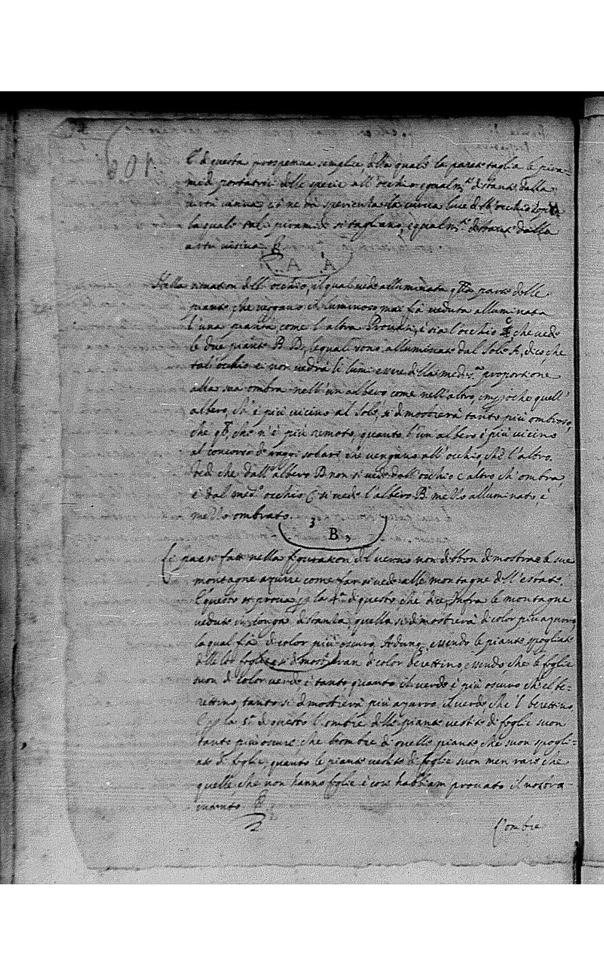 109
È di questa prospettiva semplice, della quale la parete taglia le pira-
midi portatrici delle specie all'occhio equalm.te distante dalla
virtù visiva
la quale tal piramide si tagliano equalm.te distante dalla
virtù visiva
A A
Nella situation dell'occhio, il qual vede alluminata q.lla parte delle
piante, che veggano il luminoso mai fia veduta alluminata
l'una pianta come l'altra. Provasi, e sia l'occhio C, che vede
le due piante B D, le quali sono alluminate dal Sole A, dico che
tal' occhio C non vedrà li lumi essere della med.ma proportione
alla sua ombra nell'un albero come nell'altro, imperoche quell'
albero, ch'è più vicino al Sole, si dimostrerà tanto più ombroso,
che q.llo, che n'è più remoto, quanto l'un albero è più vicino
al concorso de raggi solari che vengano all'occhio, che l'altro.
Vedi che dall'albero D non si vede dall'occhio C altro, ch'ombra,
e dal med.o occhio C si vede l'albero B mezzo alluminato e
mezzo ombrato.
3
B,
Li paesi fatti nella figuration del verno non debbon dimostrare le sue
montagne azurre come far si vede alle montagne dell'estate.
E questo si prova p la 4.a di questo che dice, Infra le montagne
vedute in longa distantia quella si dimostrerà di color più azurro
la qual fia di color più oscuro. Adunq. essendo le piante spogliate
delle lor foglie si dimostreran di color berettino, essendo che le foglie
suon di color verde, e tanto quanto il verde è più oscuro che'l be-
rettino, tanto si dimostrerà più azurro il verde, che'l berettino
E p la 5.a di questo l'ombre delle piante vestite di foglie suon
tanto più oscure, che l'ombre di quelle piante, che suon spogli-
ate di foglie quanto le piante vestite di foglie suon men rare che
quelle, che non hanno foglie e così habbiam provato il nostro
intento
L'ombre